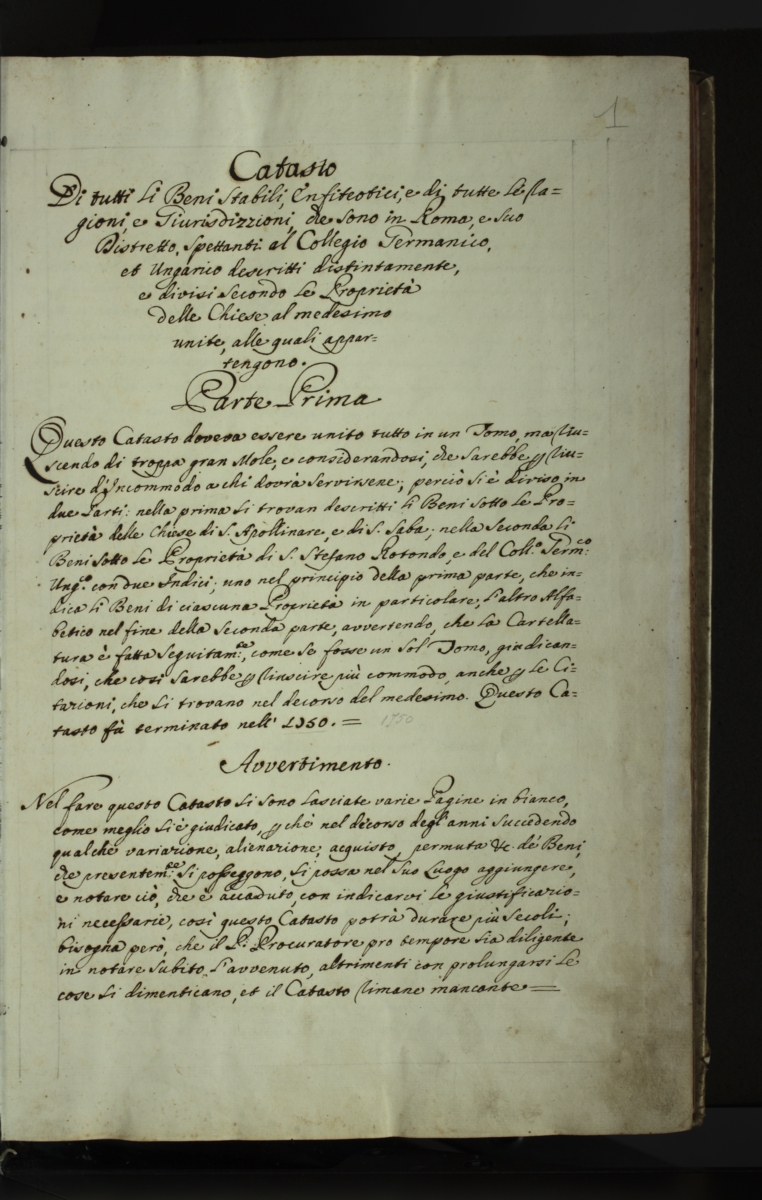 1
Catasto
Di tutti li Beni Stabili, Enfiteotici, e di tutte le Ra=
gioni, e Giurisdizzioni, che sono in Roma, e suo
Distretto, Spettanti al Collegio Germanico,
et Ungarico descritti distintamente,
e divisi secondo le Proprietà
delle Chiese al medesimo
unite, alle quali appar=
tengono.
Parte Prima
Questo Catasto doveva essere unito tutto in un Tomo, ma riu=
scendo di troppa gran Mole, e considerandosi, che sarebbe p riu=
scire d'Incommodo a chi dovrà servirsene; perciò si è diviso in
due Parti: nella prima si trovan descritti li Beni sotto le Pro=
prietà delle Chiese di S. Apollinare, e di S. Saba; nella Seconda li
Beni sotto le Proprietà di S. Stefano Rotondo, e del Coll.o Germ:co
Ung.o con due Indici; uno nel principio della prima parte, che in=
dica li Beni di ciascuna Proprietà in particolare; l'altro Alfa=
betico nel fine della Seconda parte, avvertendo, che la Cartella=
tura è fatta seguitam:te, come se fosse un sol Tomo, giudican=
dosi, che così sarebbe p riuscire più commodo, anche p le Ci=
tazioni, che si trovano nel decorso del medesimo. Questo Ca=
tasto fù terminato nell' 1750. = 1750
Avvertimento.
Nel fare questo Catasto si sono lasciate varie Pagine in bianco,
come meglio si è giudicato, p chè nel decorso degl'anni succedendo
qualche variazione, alienazione, acquisto, permuta &c. de' Beni,
che presentem:te si posseggono, si possa nel suo Luogo aggiungere,
e notare ciò, che è accaduto, con indicarvi le giustificazio=
ni necessarie, così questo Catasto potrà durare più secoli;
bisogna però, che il P. Procuratore pro tempore sia diligente
in notare subito l'avvenuto, altrimenti con prolungarsi le
cose si dimenticano, et il Catasto rimane mancante =